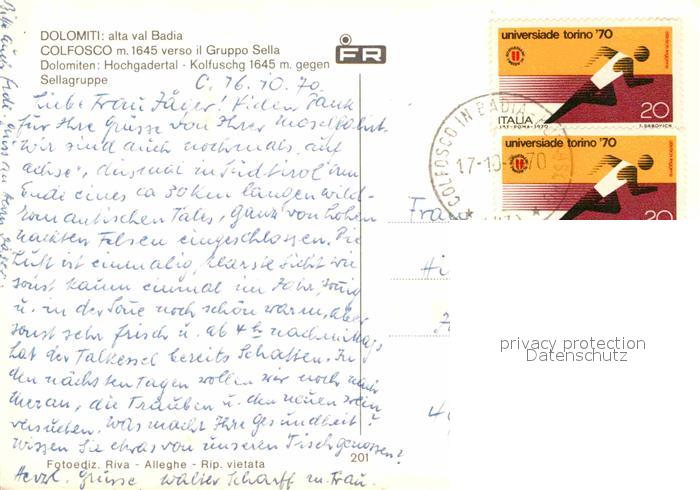 DOLOMITI: alta val Badia
COLFOSCO m. 1645 verso il Gruppo Sella
Dolomiten: Hochgadertal - Kolfuschg 1645 m. gegen
Sellagruppe
FR
C. 16.10.70
Liebe Frau Jäger! Vielen Dank
für Ihre Grüsse von Ihrer Moselfahrt.
Wir sind auch nochmals, auf
achse, diesmal in Südtirol am
Ende eines ca 30 km langen wild-
romantischen Tales, ganz von hohen
nackten Felsen eingeschlossen. Die
Luft ist einmalig, klarste Sicht wie
sonst kaum einmal im Jahr, sonnig
u. in der Sonne noch schön warm, aber
sonst sehr frisch u. ab 4 h nachmittags
hat der Talkessel bereits Schatten. In
den nächsten Tagen wollen wir noch nach
Meran, die Trauben u. den neuen Wein
versuchen. Was macht Ihre Gesundheit?
Wissen Sie etwas von unseren Tischgenossen?
Herzl. Grüsse, Walter Scharff m. Frau.
Fotoediz. Riva - Alleghe - Rip. vietata
201
universiade torino '70
ITALIA
20
I.P.S.-ROMA-1970
universiade torino '70
20
COLFOSCO IN BADIA
17-10-70
Frau
Hi
privacy protection
Datenschutz